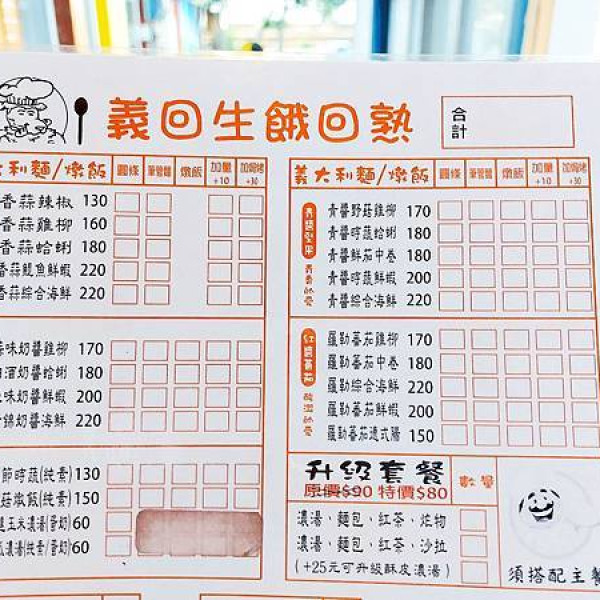 義回生餓回熟
合計
大利麵/燉飯 圓條 筆管麵 燉飯 加量+10 加焗烤+30
香蒜辣椒 130
香蒜雞柳 160
香蒜蛤蜊 180
香蒜鯷魚鮮蝦 220
香蒜綜合海鮮 220
味奶醬雞柳 170
酒奶醬蛤蜊 180
味奶醬鮮蝦 200
錦奶醬海鮮 220
節時蔬(純素) 130
菇燉飯(純素) 150
玉米濃湯(蛋奶) 60
濃湯(純素/蛋奶) 60
義大利麵/燉飯 圓條 筆管麵 燉飯 加量+10 加焗烤+30
青醬堅果
青醬野菇雞柳 170
青醬時蔬蛤蜊 180
青醬鮮茄中卷 180
青醬時蔬鮮蝦 200
青醬綜合海鮮 220
紅醬蕃茄
羅勒蕃茄雞柳 170
羅勒蕃茄中卷 180
羅勒綜合海鮮 220
羅勒蕃茄鮮蝦 200
羅勒蕃茄德式腸 150
升級套餐 數量
原價$90 特價$80
濃湯、麵包、紅茶、炸物
濃湯、麵包、紅茶、沙拉
(+25元可升級酥皮濃湯)
須搭配主餐